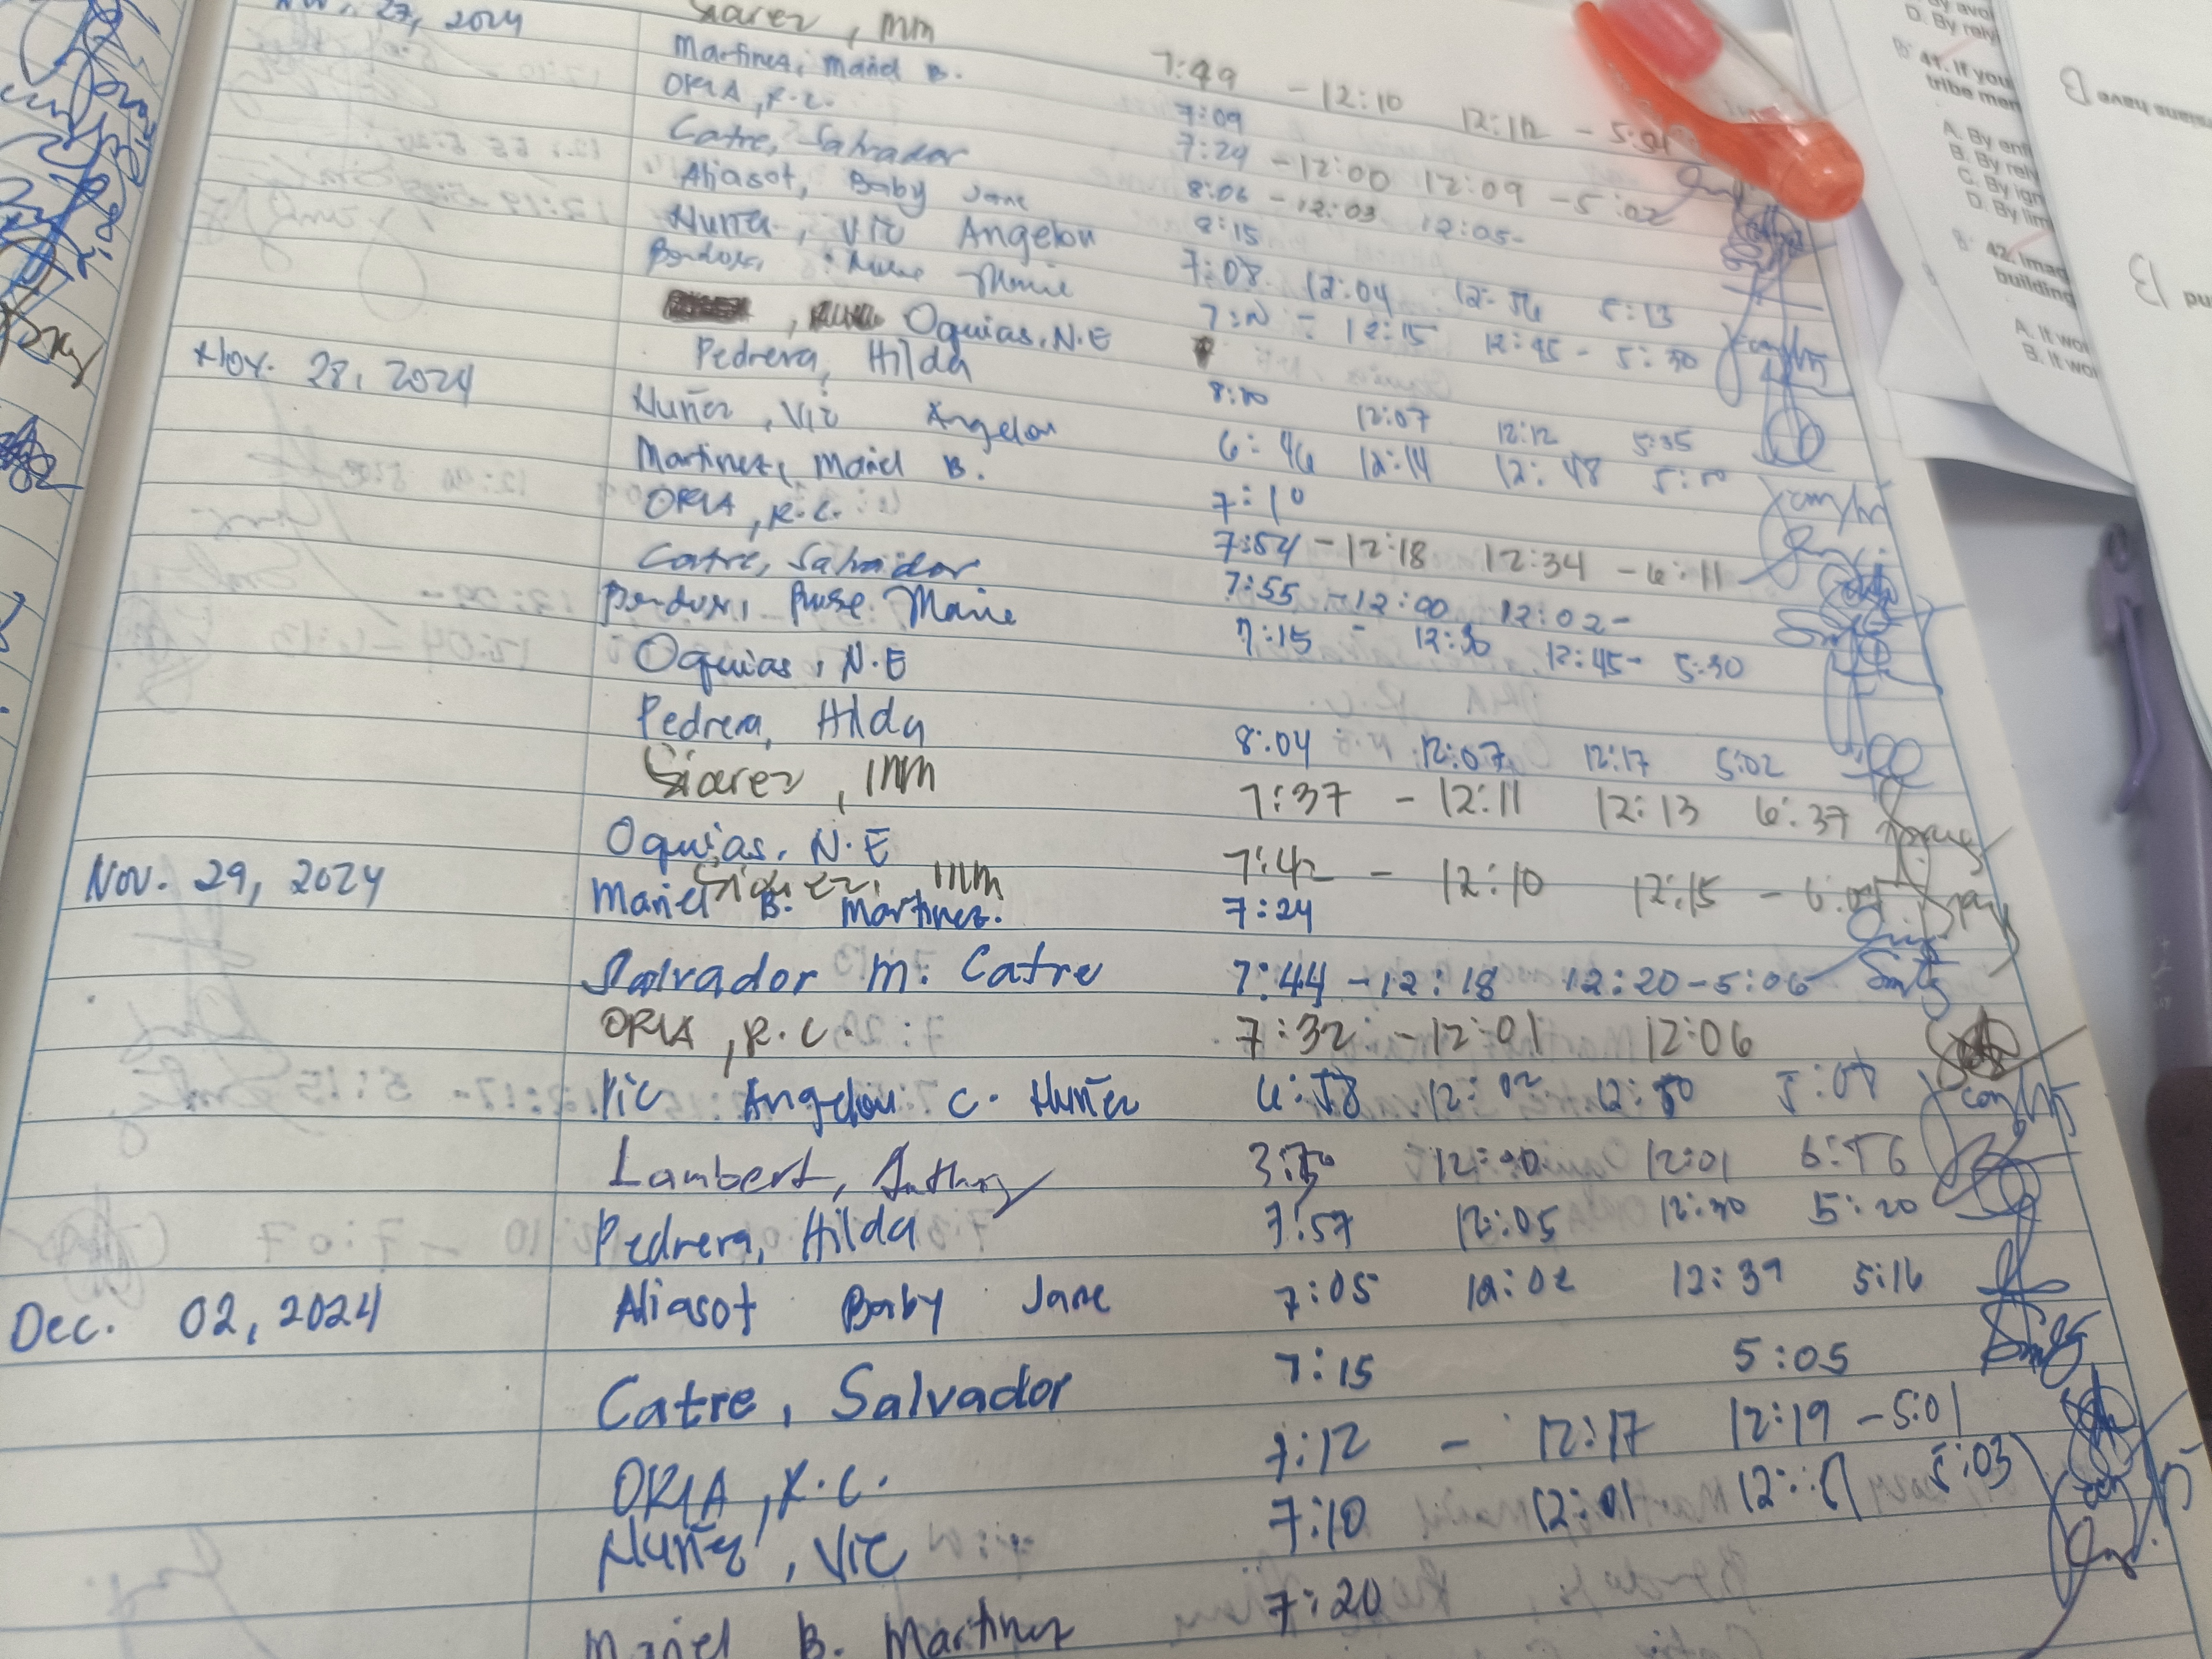 27, 2024
Siarez, MM 7:49 - 12:10 12:12 - 5:01
Martinez, Mariel B. 7:09
ORIA, R.C. 7:24 - 12:00 12:09 - 5:02
Catre, Salvador 8:06 - 12:03 12:05-
Aliasot, Baby Jane 8:15
Nuñez, Vic Angelou 7:08 12:04 12:56 5:13
Marie 12:15 12:45 - 5:30
Oquias, N.E
Nov. 28, 2024 Pedrera, Hilda 8:10 12:07 12:12 5:35
Nuñez, Vic Angelou 6:46 12:14 12:48 5:10
Martinez, Mariel B. 7:10
ORIA, R.C. 7:54 - 12:18 12:34 - 6:11
Catre, Salvador 7:55 - 12:00 12:02-
Rose Marie 7:15 - 12:30 12:45- 5:30
Oquias, N.E
Pedrera, Hilda 8:04 12:07 12:17 5:02
Siarez, MM 7:37 - 12:11 12:13 6:37
Oquias, N.E
Nov. 29, 2024 Siarez, MM 7:42 - 12:10 12:15 -
Mariel B. Martinez. 7:24
Salvador M. Catre 7:44 - 12:18 12:20 - 5:06
ORIA, R.C. 7:32 - 12:01 12:06
Vic Angelou C. Nuñez 6:58 12:02 12:50 5:07
Lambert, Anthony 12:00 12:01 6:56
Pedrera, Hilda 7:57 12:05 12:30 5:20
Dec. 02, 2024 Aliasot Baby Jane 7:05 12:02 12:39 5:16
Catre, Salvador 7:15 5:05
ORIA, R.C. 7:12 - 12:17 12:19 - 5:01
Nuñez, Vic 7:10 12:01 5:03
Mariel B. Martinez 7:20
D. By rely
41. If you
tribe mem
A. By enf
B. By rely
C. By ign
D. By lim
42. Imag
building
A. It wou
B. It wou